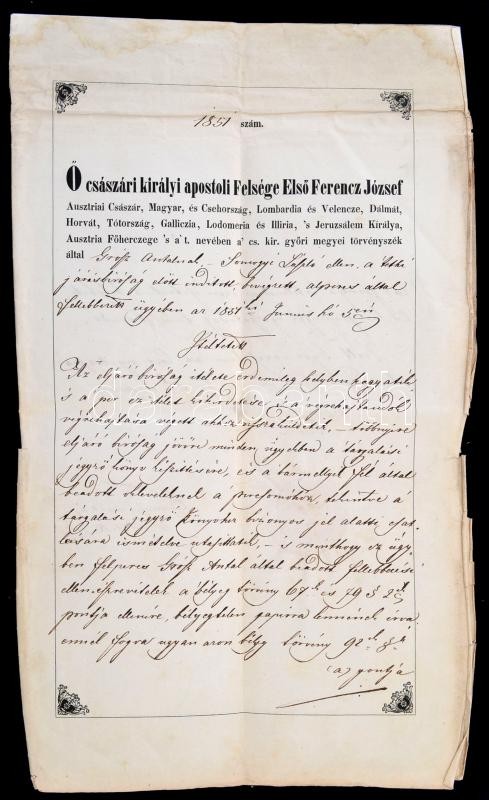 1851 szám.
Ő császári királyi apostoli Felsége Első Ferencz József
Ausztriai Császár, Magyar, és Csehország, Lombardia és Velencze, Dálmát,
Horvát, Tótország, Galliczia, Lodomeria és Illiria, 's Jeruzsálem Királya,
Ausztria Főherczege 's a' t. nevében a' cs. kir. győri megyei törvényszék
által Grósz Antalnak – Somogyi László ellen, a
járásbiróság előtt inditott, bevégzett, alperes által
fellebbezett ügyében az 1851 Junius hó 5én
Itéltetett
Az eljáró biróság itélete érdemileg helyben hagyatik
s a per az itélet kihirdetése és a végrehajtandók
végrehajtása végett
eljáró biróság jövőre minden ügyekben a tárgalási
jegyző könyv és a bármellyik fél által
beadott okleveleknek a percsomóhoz, tekintve a
tárgalási jegyző könyvhez bizonyos jel alatti csat-
lására utasittatik, – is minthogy ez ügy-
ben felperes Grósz Antal által beadott fellebbezési
a bélyeg törvény 67 és 79 § 2
pontja ellenére, bélyegtelen papirra
ennél fogva ugyan azon bélyeg törvény 92
(a) pontja